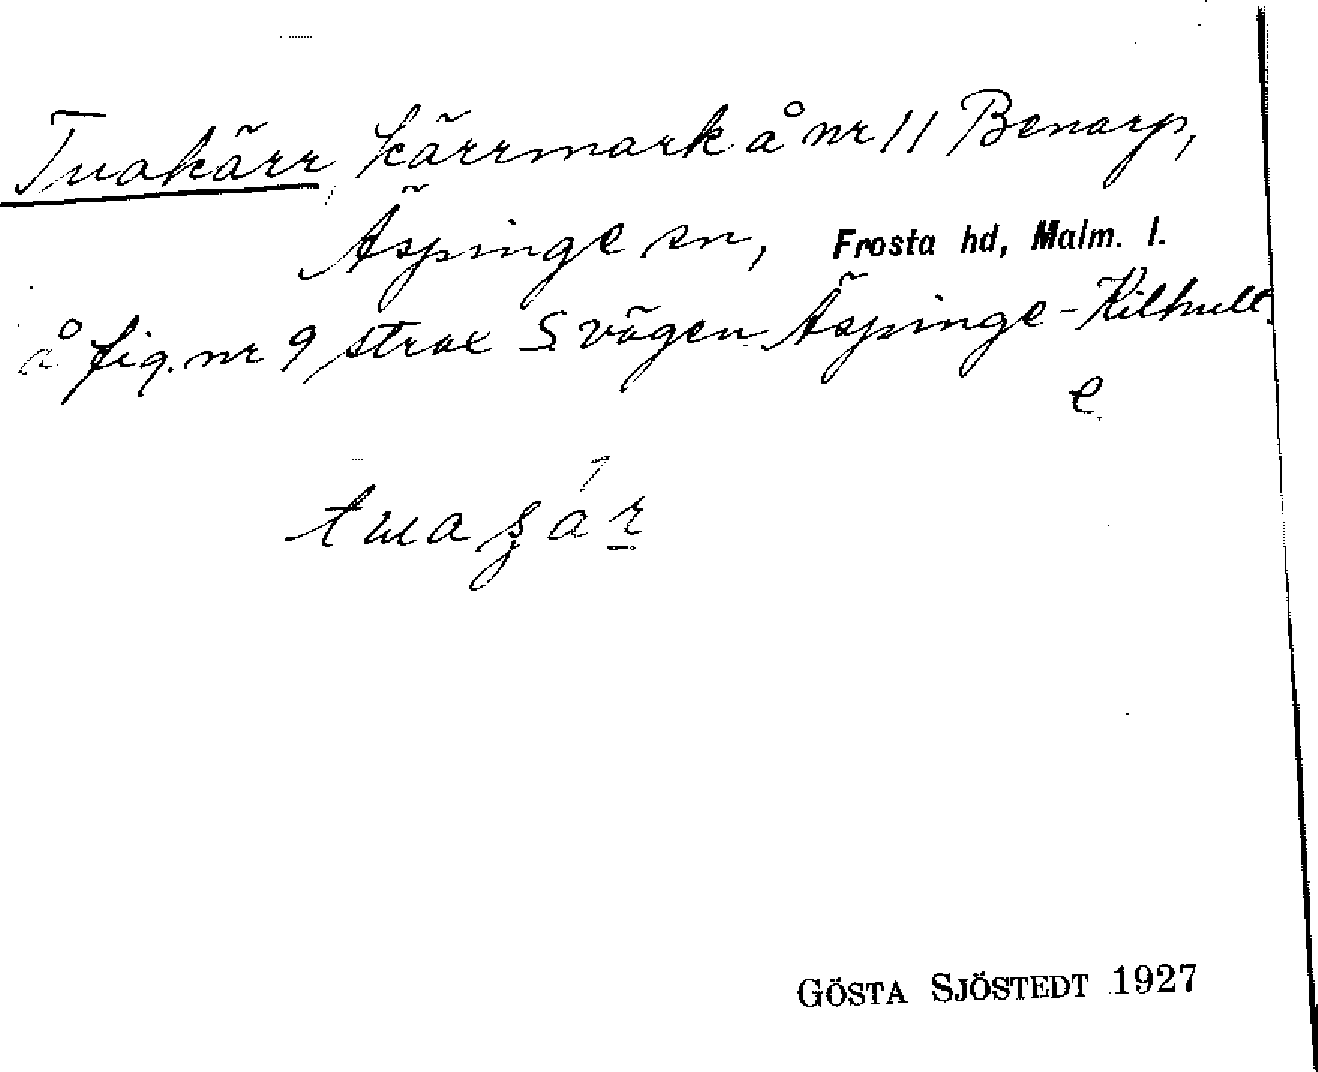 Tuakärr, kärrmark å nr 11 Benarp,
Äspinge sn, Frosta hd, Malm. l.
å fig. nr 9 strax S vägen Äspinge-Kilhult.
e
GÖSTA SJÖSTEDT 1927